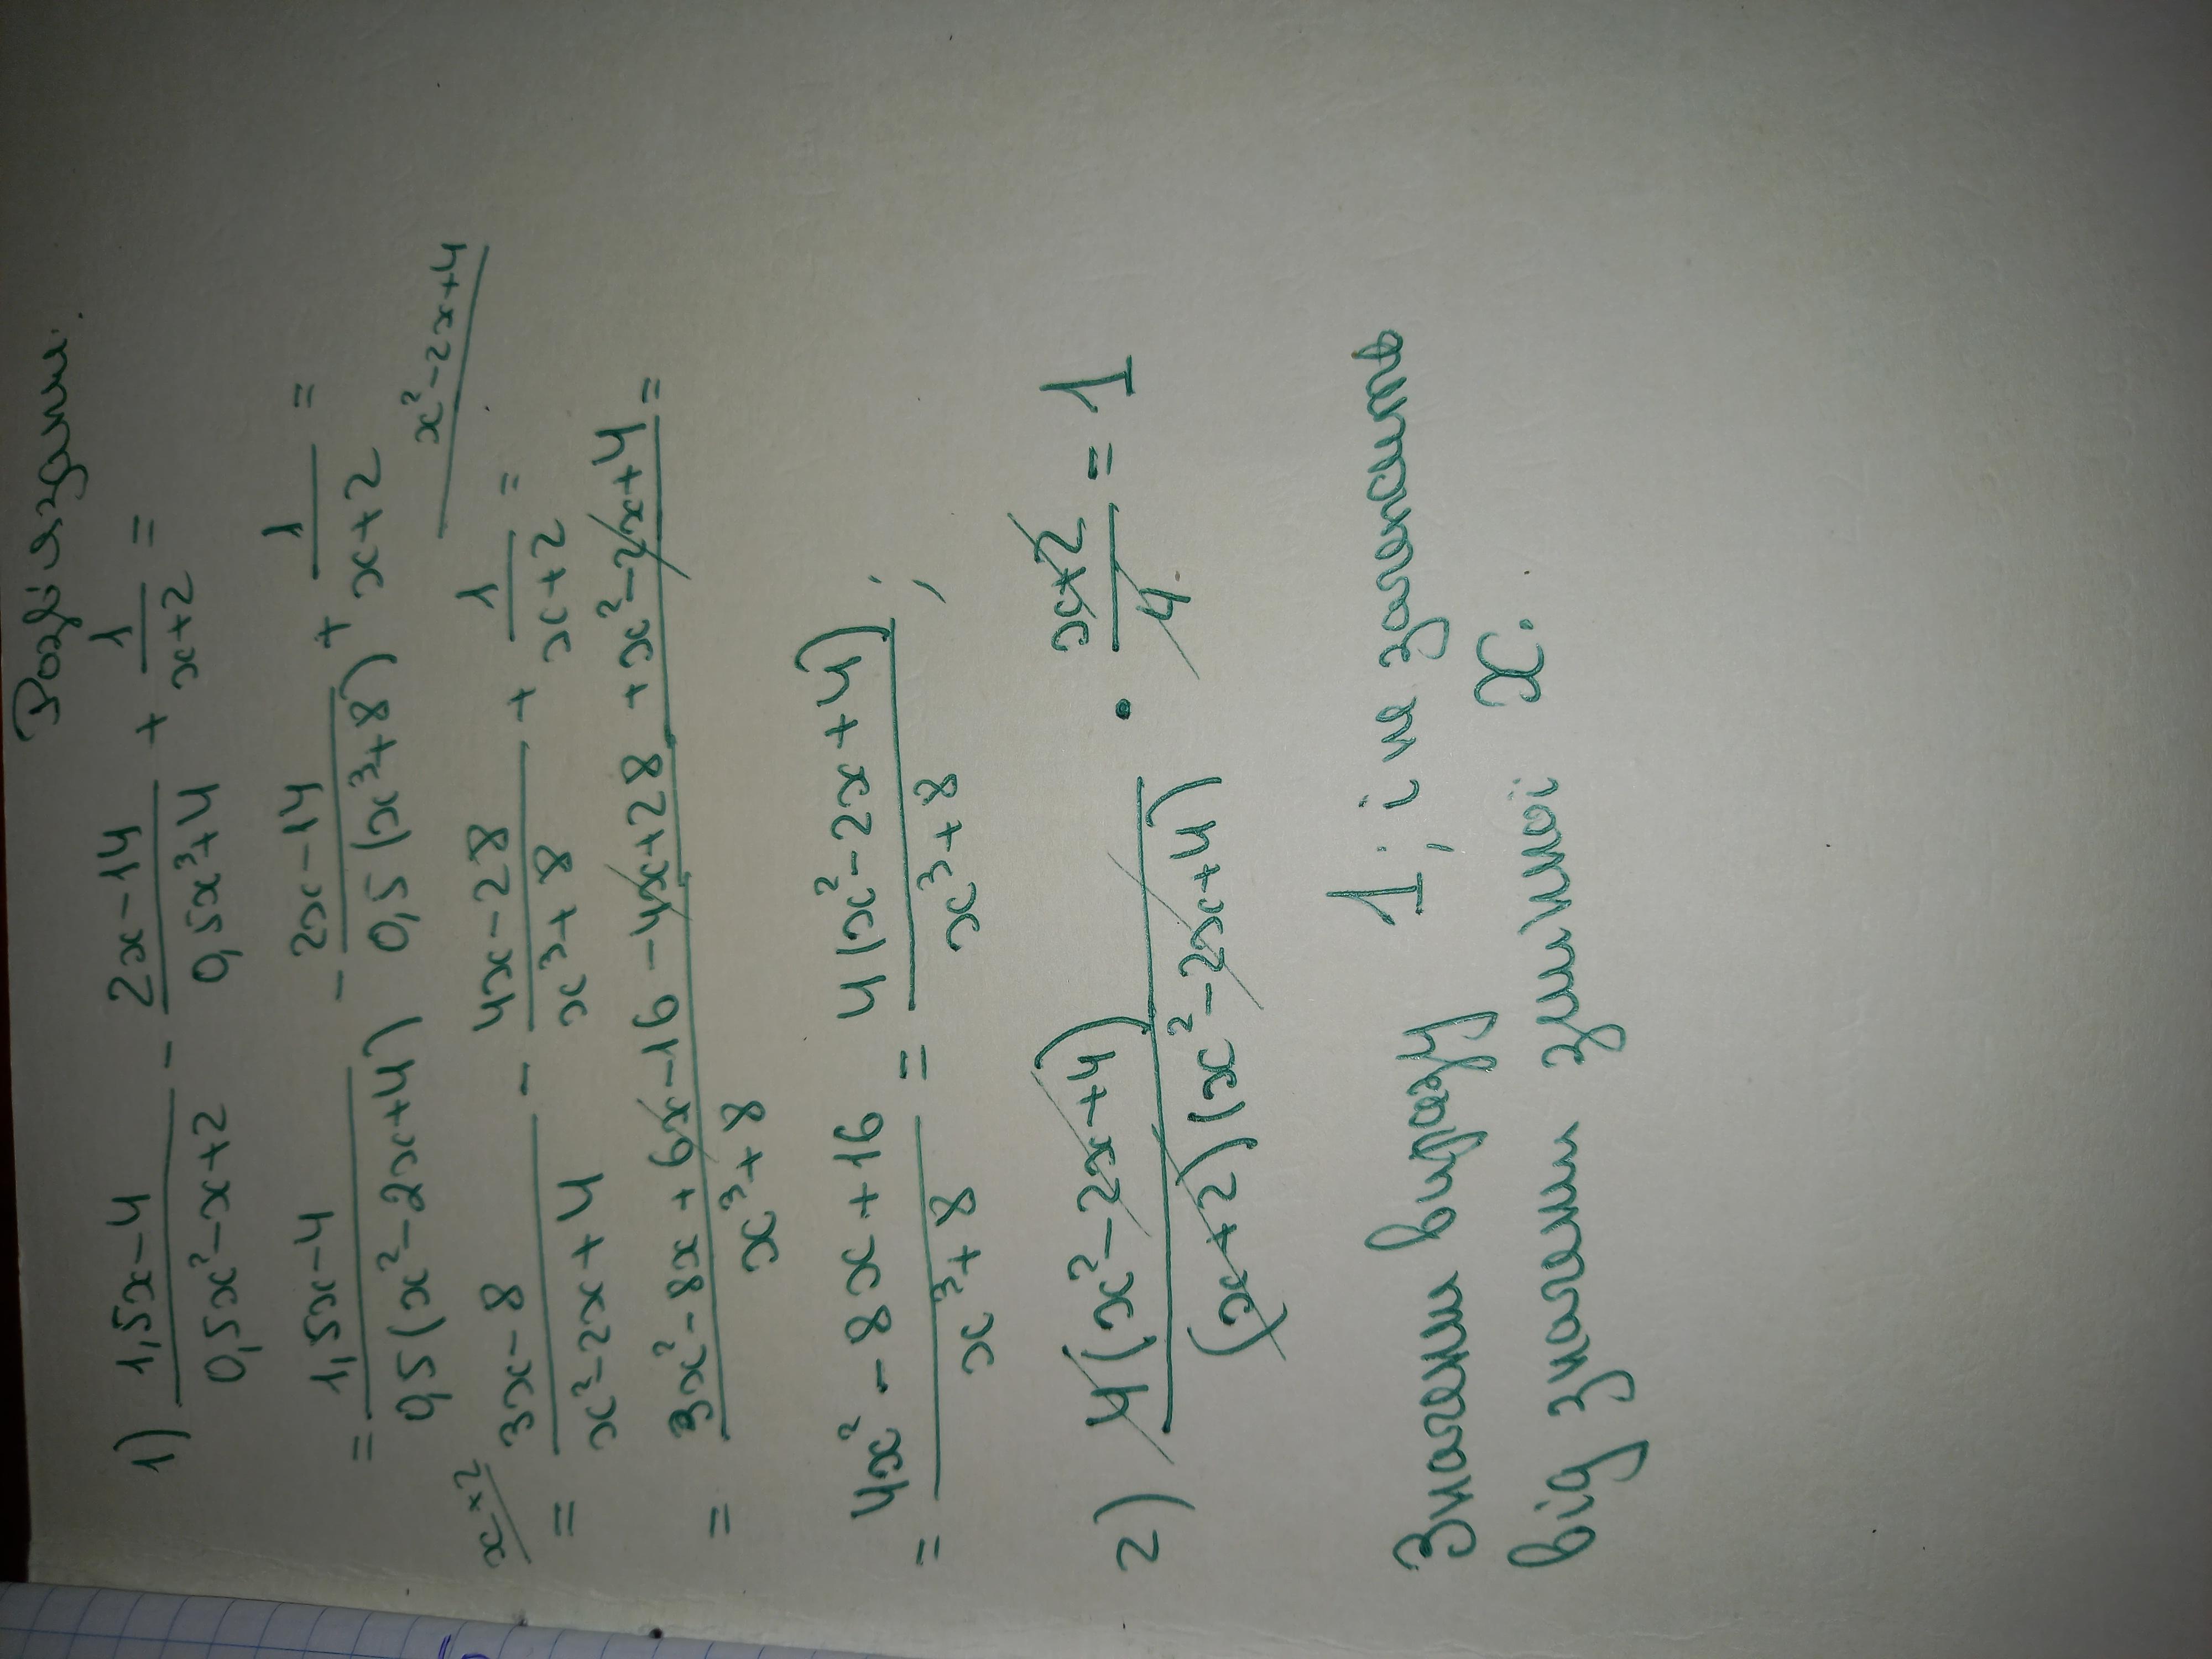 Розв'язання.
1) (1,5x-4)/(0,5x²-x+2) - (2x-14)/(0,5x³+4) + 1/(x+2) =
= (1,5x-4)/(0,5(x²-2x+4)) - (2x-14)/(0,5(x³+8)) + 1/(x+2) =
x+2 x²-2x+4
= (3x-8)/(x²-2x+4) - (4x-28)/(x³+8) + 1/(x+2) =
= (3x²-8x+6x-16-4x+28+x²-2x+4)/(x³+8) =
= (4x²-8x+16)/(x³+8) = 4(x²-2x+4)/(x³+8) ;
2) 4(x²-2x+4)/((x+2)(x²-2x+4)) · (x+2)/4 = 1
Значення виразу 1; і не залежить
від значення змінної x.